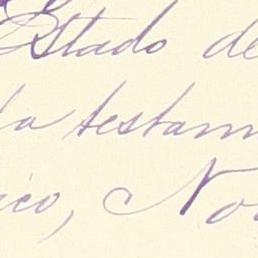 Estado de
la testam
ico, No